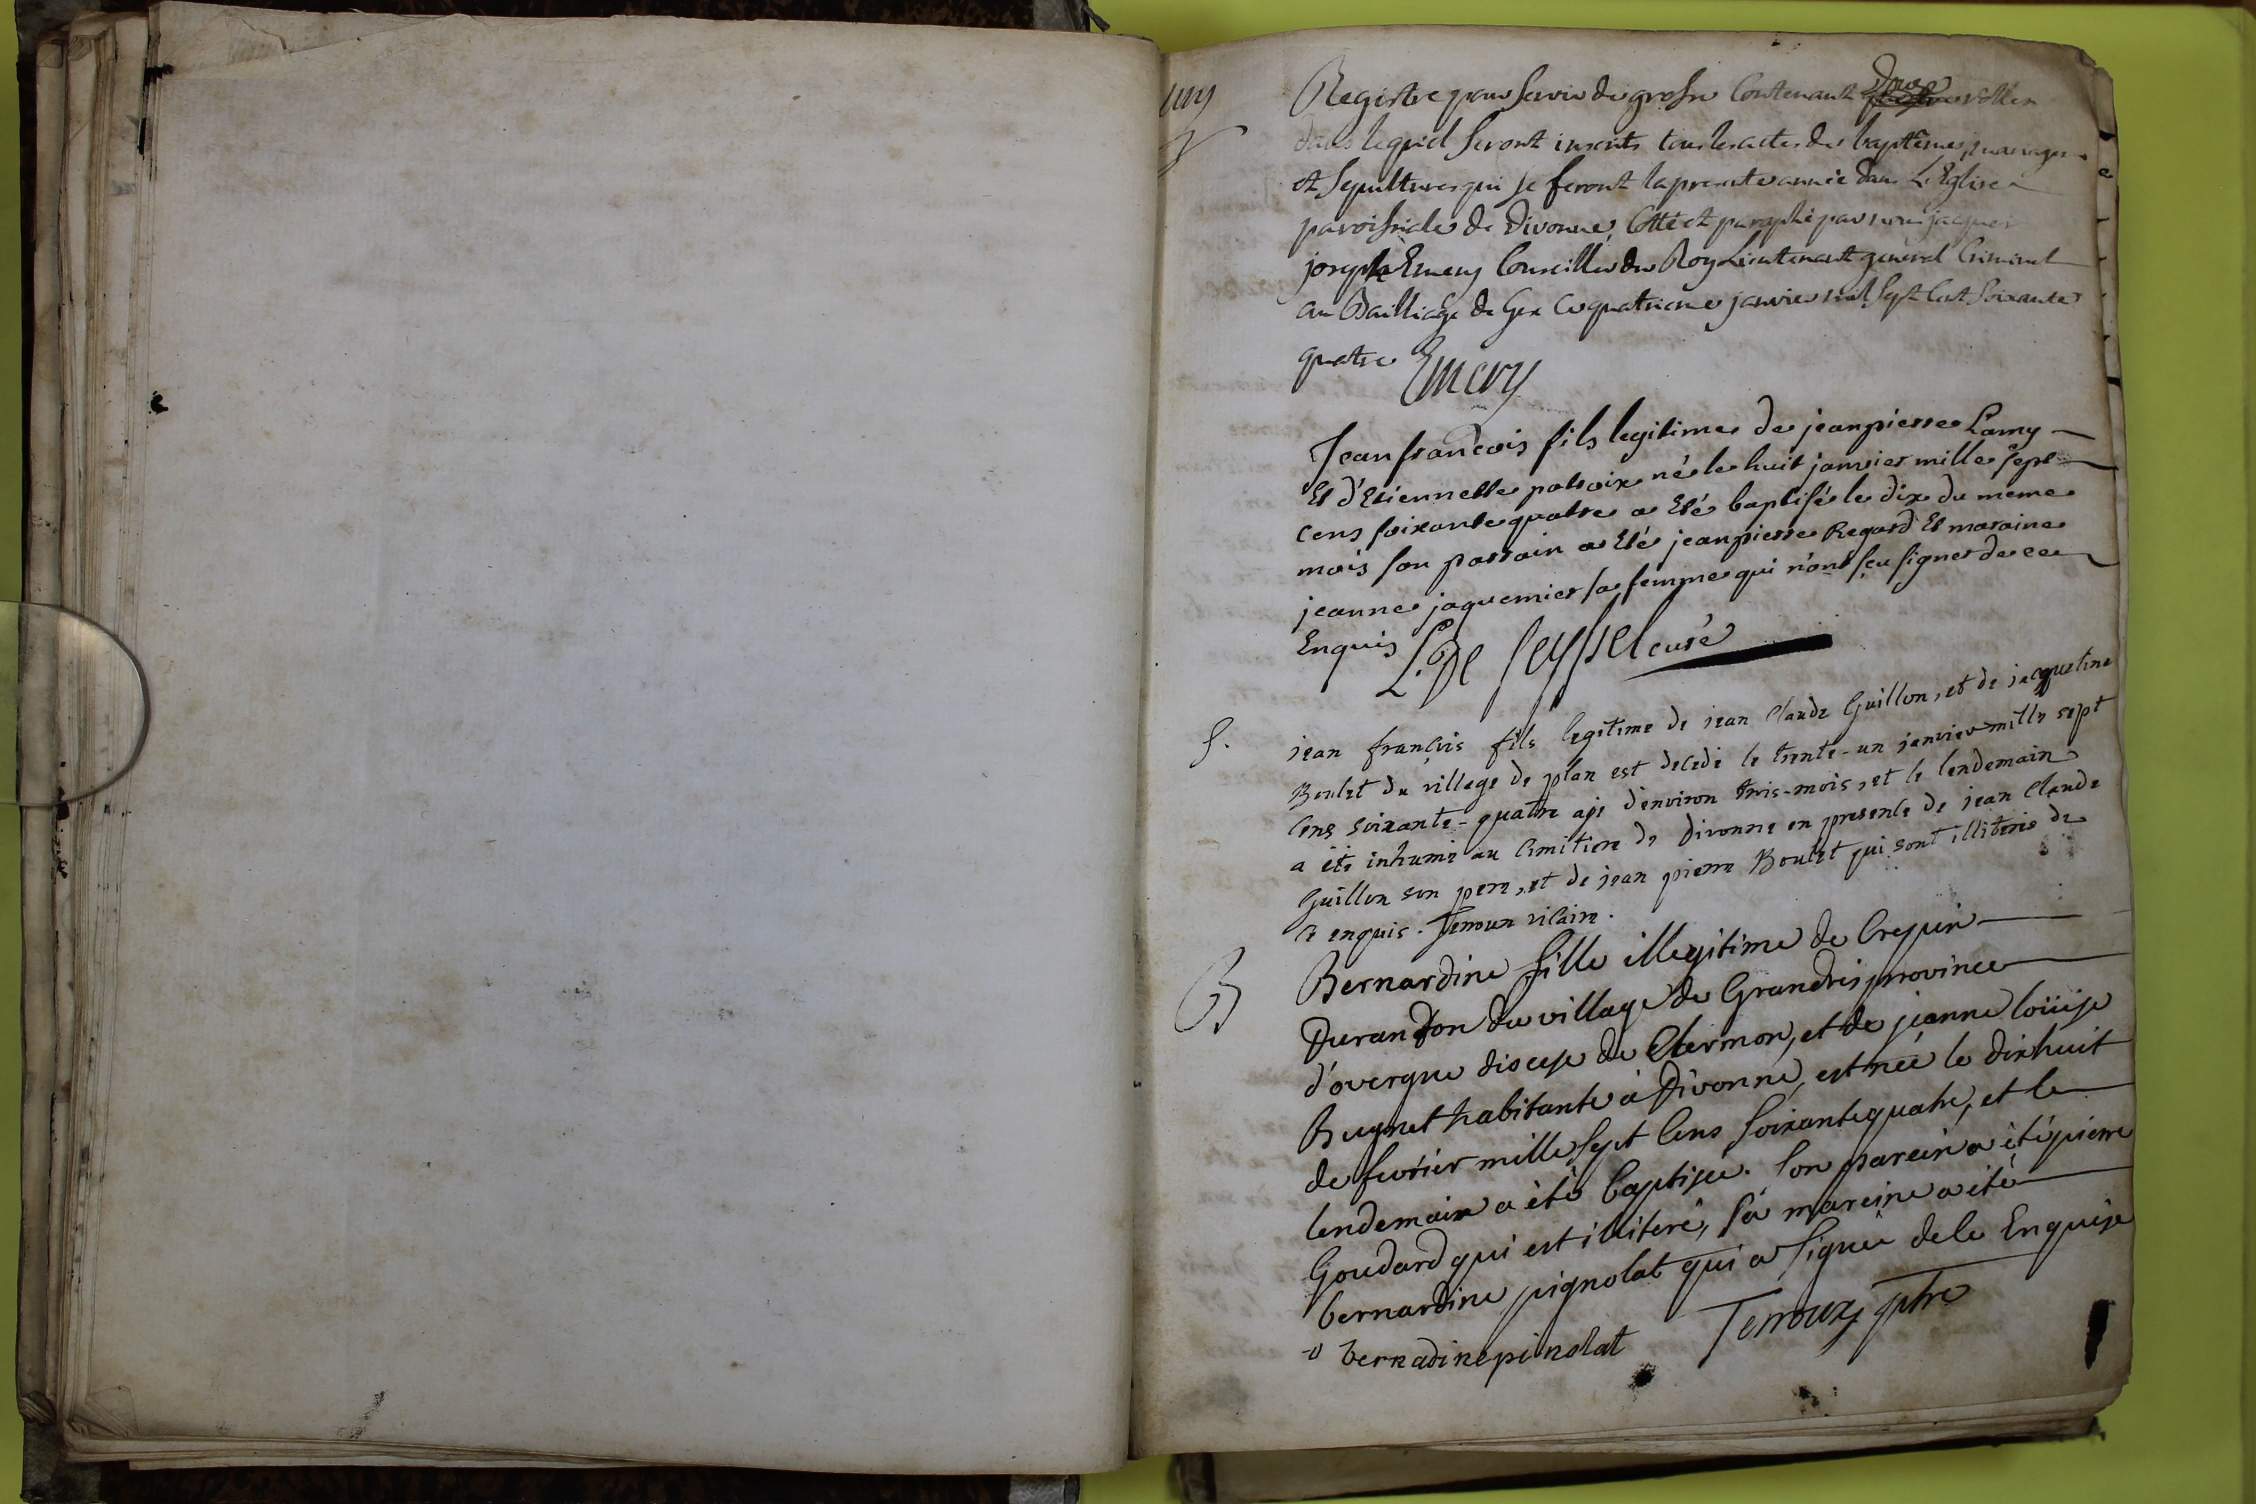 Registre pour servir de grosse Contenant Douze rolles
dans lequel seront inscrits tous les actes des baptêmes, mariages
et sepultures qui se feront la presente année dans L'Eglise
paroissiale de Divonne, Cotté et paraphé par nous jacques
joseph Emery Conseiller du Roy Lieutenant general Criminel
au Bailliage de Gex Ce quatrieme janvier mil sept cent soixante
quatre Emery
Jean francois fils legitime de jeanpierre Lamy
Et d'Etiennette patroix né le huit janvier mille sept
cens soixante quatre a Eté baptisé le dix du meme
mois son parrain a Eté jeanpierre Regard Et maraine
jeanne jaquemier sa femme qui n'ont sçu signer de ce
Enquis L. De Seyssel curé
S. jean françois fils legitime de jean Claude Guillon, et de jacqueline
Boulet du village de plan est decedé le trente-un janvier mille sept
Cens soixante-quatre agé d'environ trois-mois, et le lendemain
a été inhumé au Cimitiere de Divonne en presence de jean Claude
Guillon son pere, et de jean pierre Boulet qui sont illiteres de
Ce enquis. Terroux vicaire.
B Bernardine fille illegitime de Crepin
Duranton du village de Grandris province
d'overgne diocese de Clermon, et de jeanne loüise
Bugnet habitante à Divonne, est née le dixhuit
de fevrier mille sept Cens soixante quatre, et le
lendemain a été baptisée. Son parein a été pierre
Goudard qui est illiteré, Sa mareine a été
bernardine pignolat qui a signée de ce Enquise
bernadine pinolat Terroux, ptre